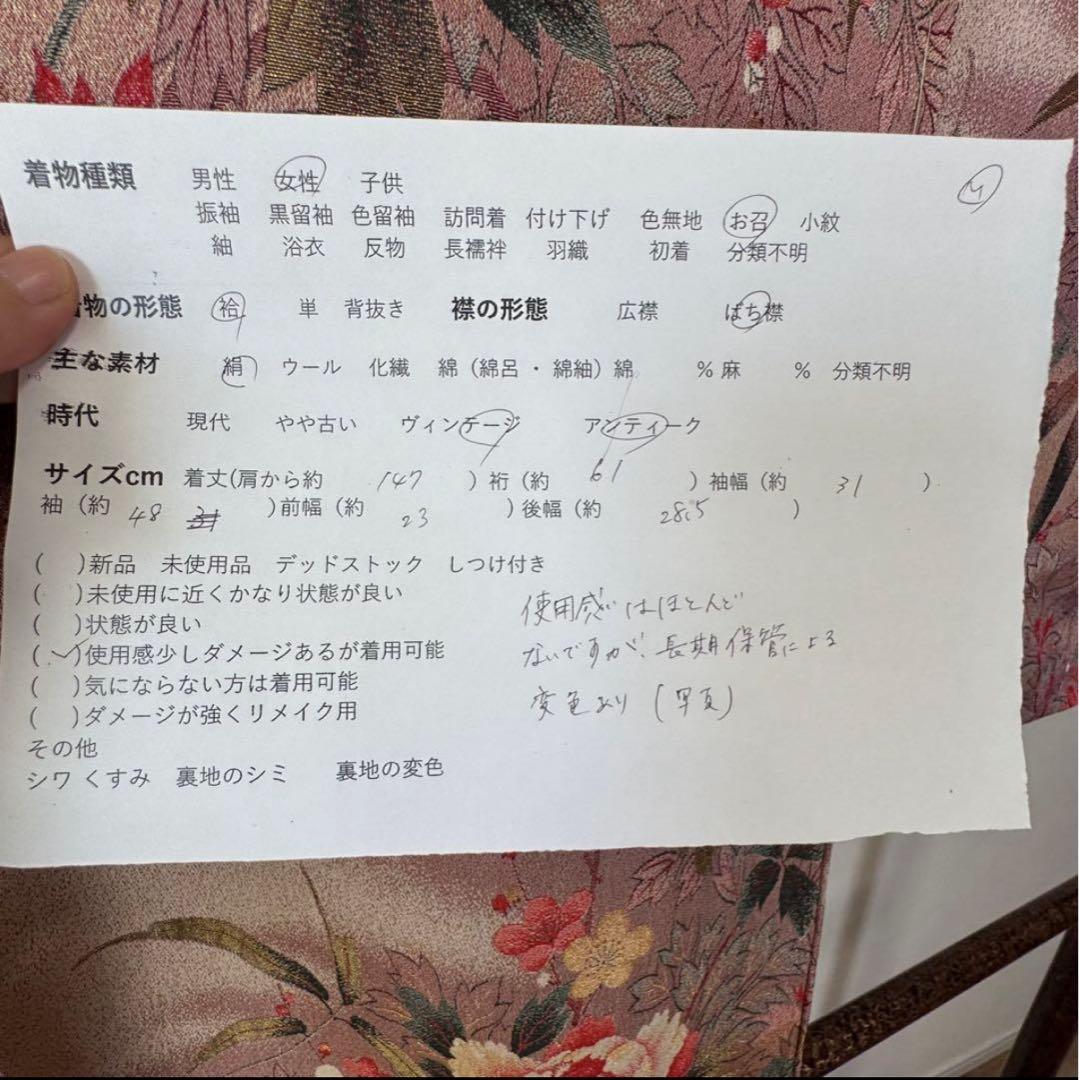 着物種類 男性 女性 子供
振袖 黒留袖 色留袖 訪問着 付け下げ 色無地 お召 小紋
紬 浴衣 反物 長襦袢 羽織 初着 分類不明
?
物の形態 袷 単 背抜き 襟の形態 広襟 ばち襟
主な素材 絹 ウール 化繊 綿(綿呂・綿紬)綿 %麻 % 分類不明
時代 現代 やや古い ヴィンテージ アンティーク
サイズcm 着丈(肩から約 147 )裄(約 61 )袖幅(約 31 )
袖(約 48 )前幅(約 23 )後幅(約 28.5 )
( )新品 未使用品 デッドストック しつけ付き
( )未使用に近くかなり状態が良い
( )状態が良い
(✓)使用感少しダメージあるが着用可能
( )気にならない方は着用可能
( )ダメージが強くリメイク用
使用感はほとんど
ないですが、長期保管による
変色あり(写真)
その他
シワ くすみ 裏地のシミ 裏地の変色